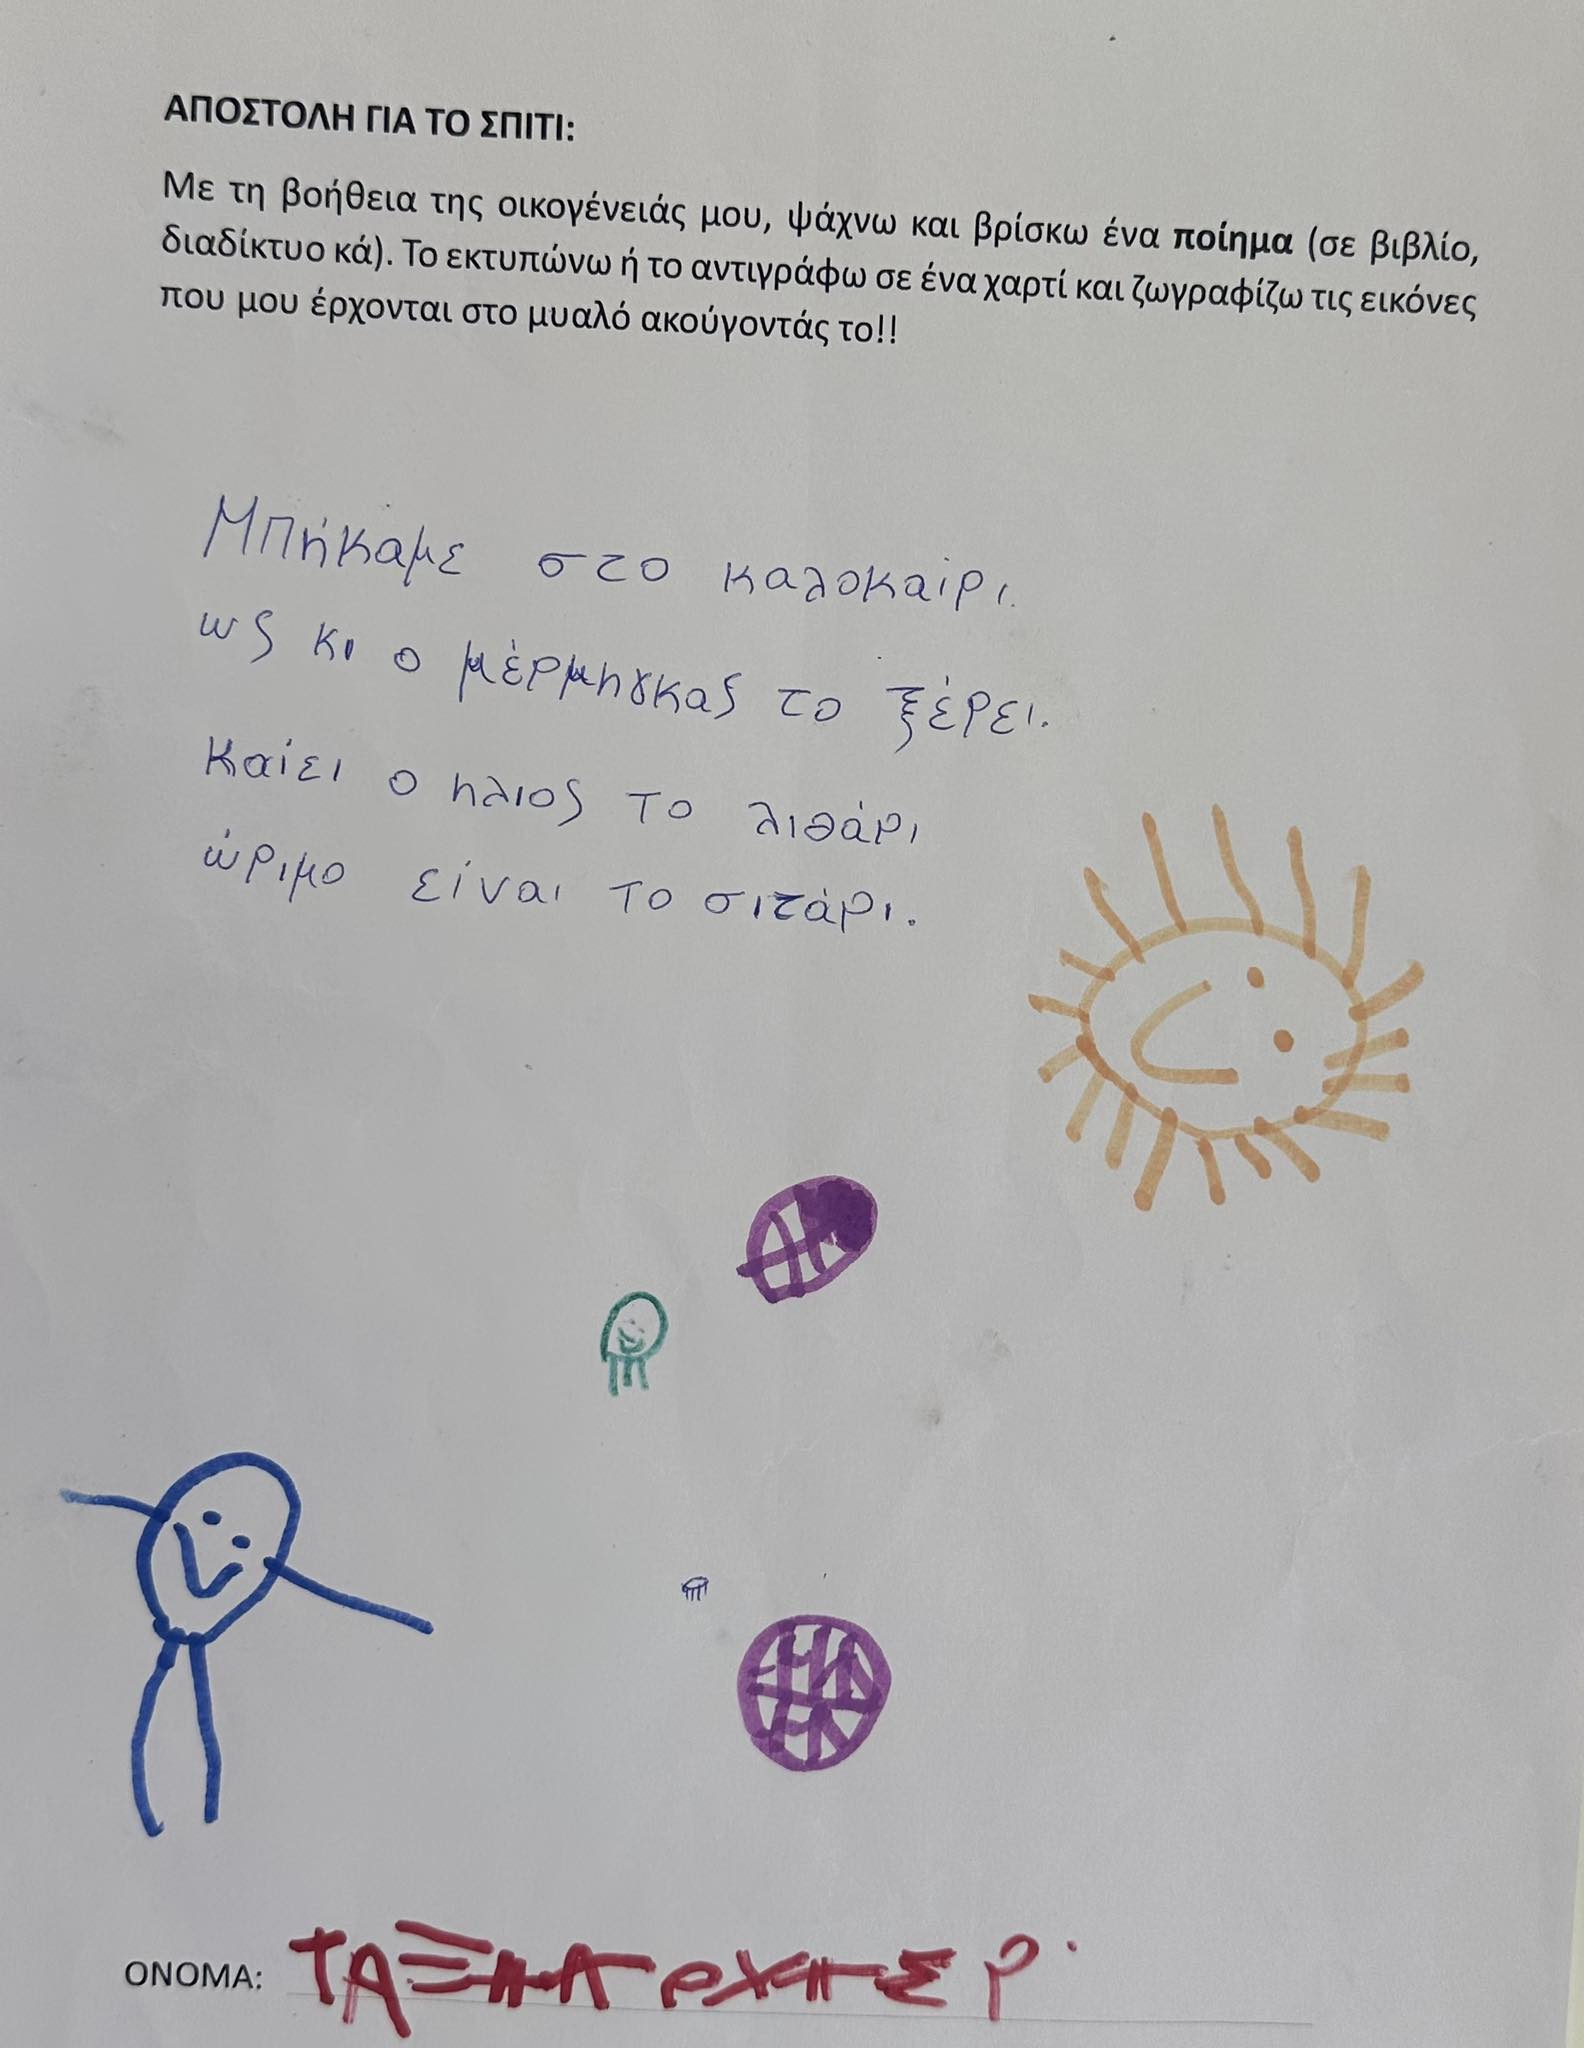 ΑΠΟΣΤΟΛΗ ΓΙΑ ΤΟ ΣΠΙΤΙ:
Με τη βοήθεια της οικογένειάς μου, ψάχνω και βρίσκω ένα ποίημα (σε βιβλίο,
διαδίκτυο κά). Το εκτυπώνω ή το αντιγράφω σε ένα χαρτί και ζωγραφίζω τις εικόνες
που μου έρχονται στο μυαλό ακούγοντάς το!!
Μπήκαμε στο καλοκαίρι.
ως κι ο μέρμηγκας το ξέρει.
Καίει ο ηλιος το λιθάρι
ώριμο είναι το σιτάρι.
ΟΝΟΜΑ: ΤΑΞΗΑΡΧΗΣ Ρ.